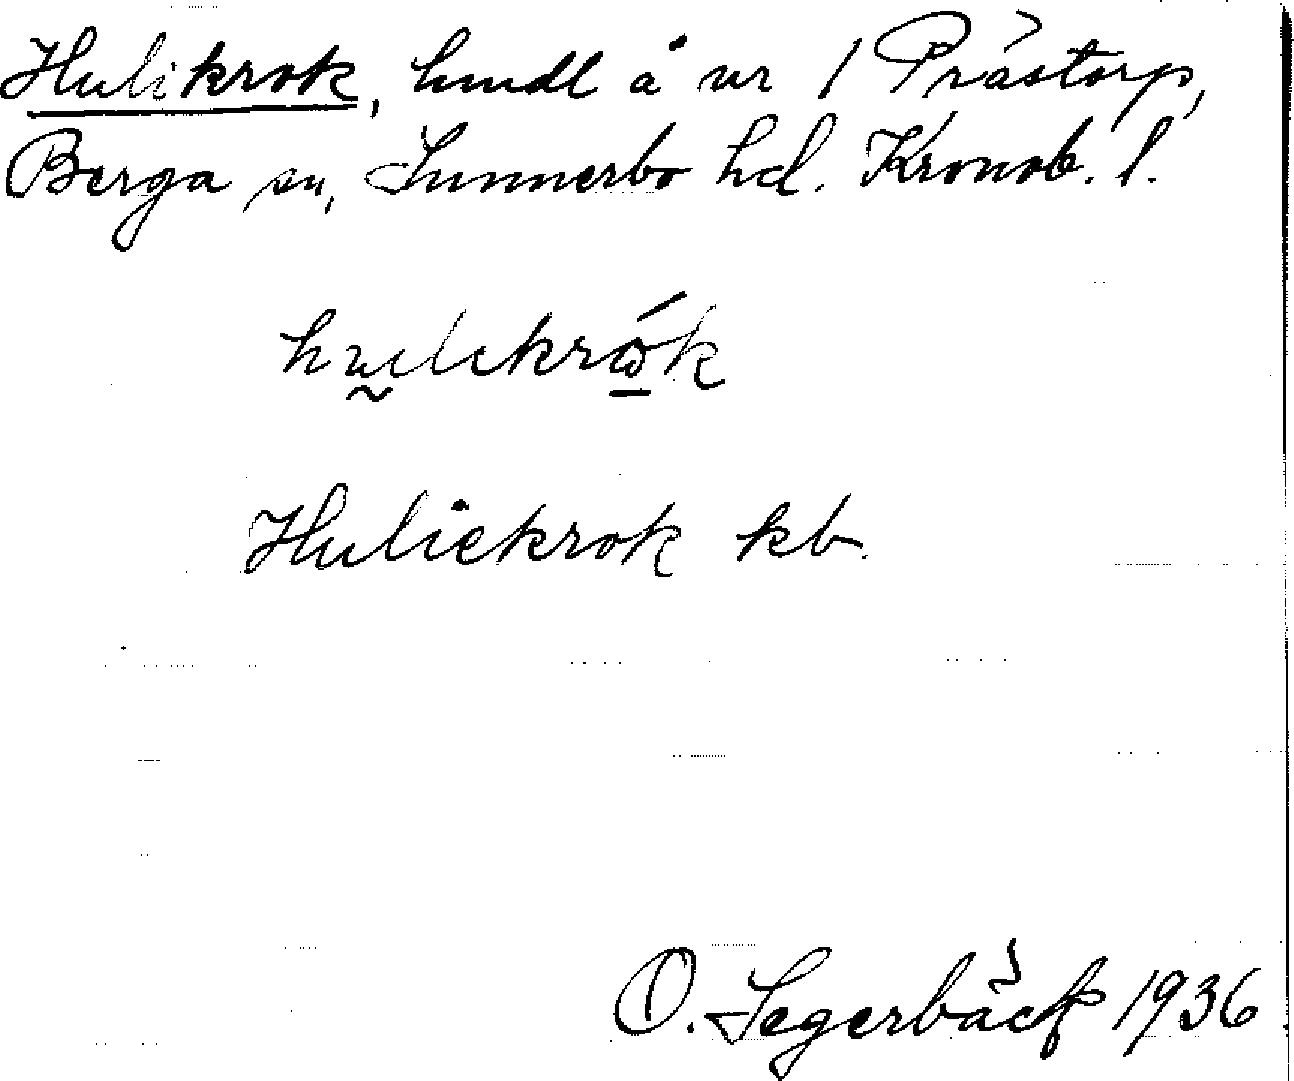 Hulikrok, hmdl å nr 1 Prästorp,
Berga sn, Sunnerbo hd. Kronob. l.
hulikrok
Huliekrok kb.
O. Segerbäck 1936